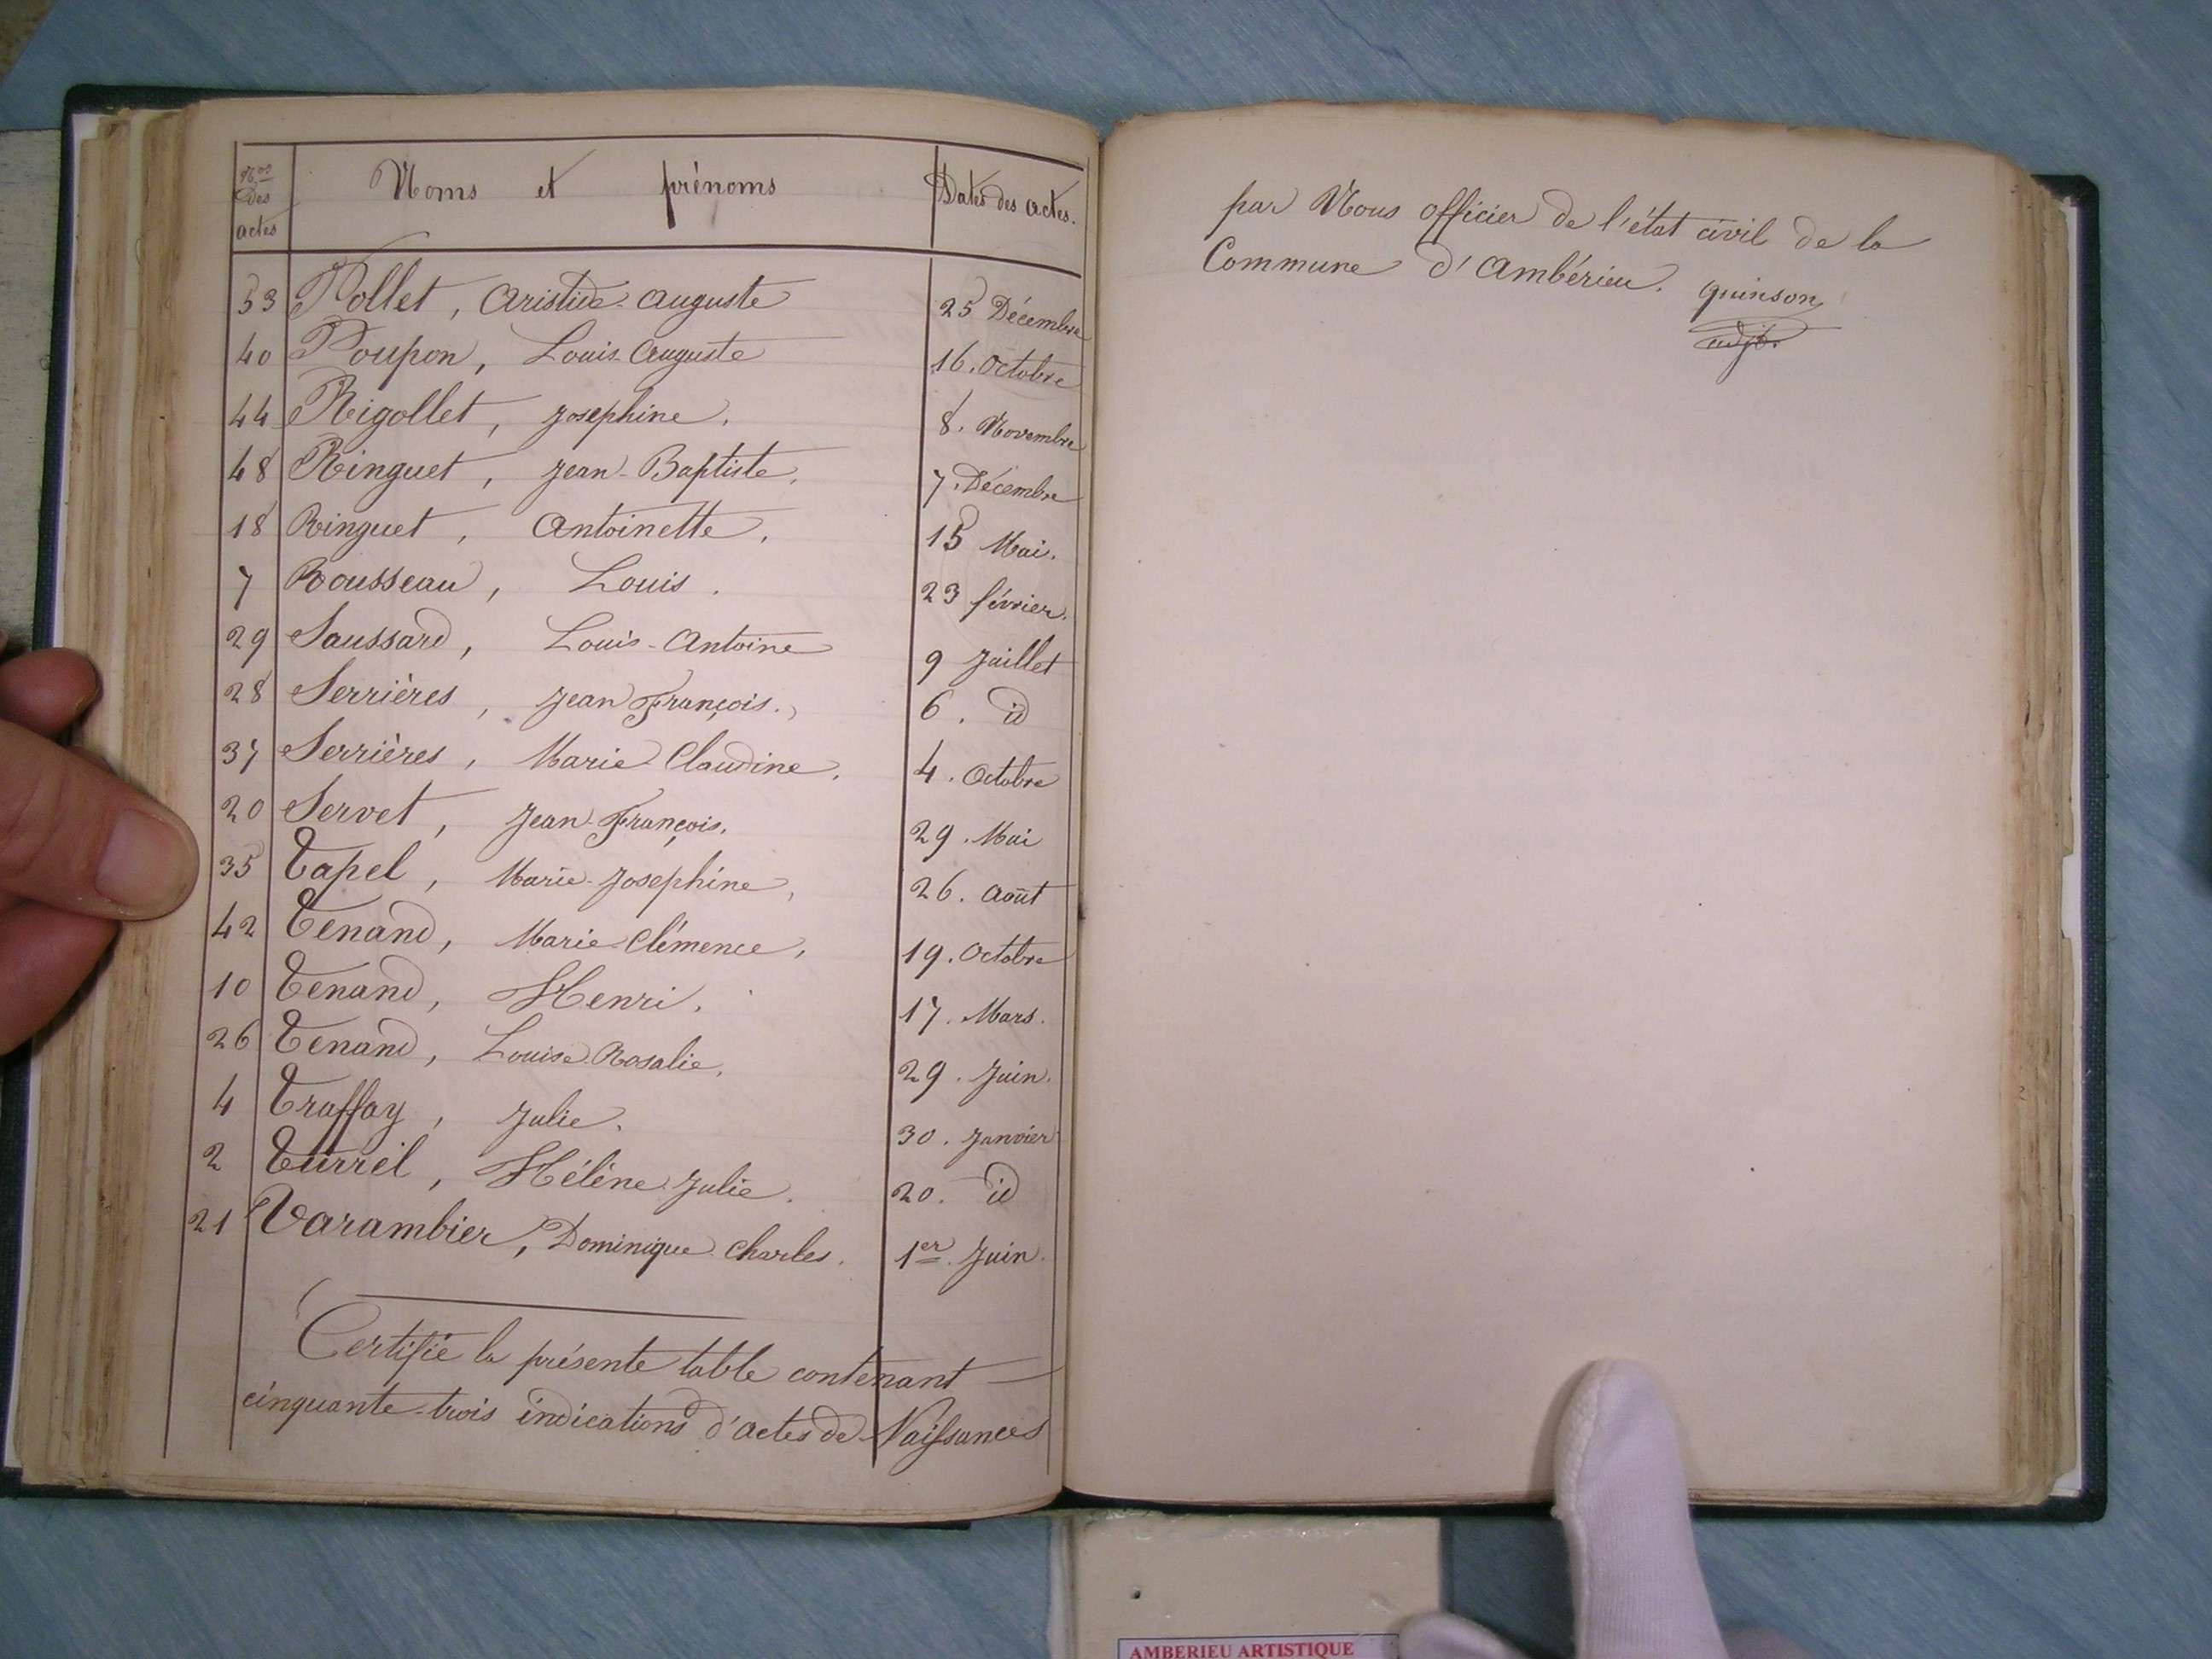 Nos Des actes Noms et prénoms Dates des actes.
53 Pollet, Aristide Auguste 25 Décembre
40 Poupon, Louis Auguste 16. Octobre
44 Rigollet, Josephine. 8. Novembre
48 Ringuet, Jean-Baptiste. 7. Décembre
18 Ringuet, Antoinette. 15 Mai.
7 Rousseau, Louis. 23 février.
29 Saussard, Louis-Antoine 9 Juillet
28 Serrières, Jean François. 6. id
37 Serrières, Marie Claudine. 4. Octobre
20 Servet, Jean-François. 29. Mai
35 Tapel, Marie-Josephine, 26. Août
42 Tenand, Marie-Clémence, 19. Octobre
10 Tenand, Henri. 17. Mars.
26 Tenand, Louise Rosalie. 29. Juin.
4 Traffay, Julie. 30. Janvier
2 Turrel, Hélène Julie. 20. id
21 Varambier, Dominique Charles. 1er Juin.
Certifié la présente table contenant
cinquante-trois indications d'actes de Naissances
par Nous officier de l'état civil de la
Commune d'Ambérieu. quinson
adjt.
AMBERIEU ARTISTIQUE